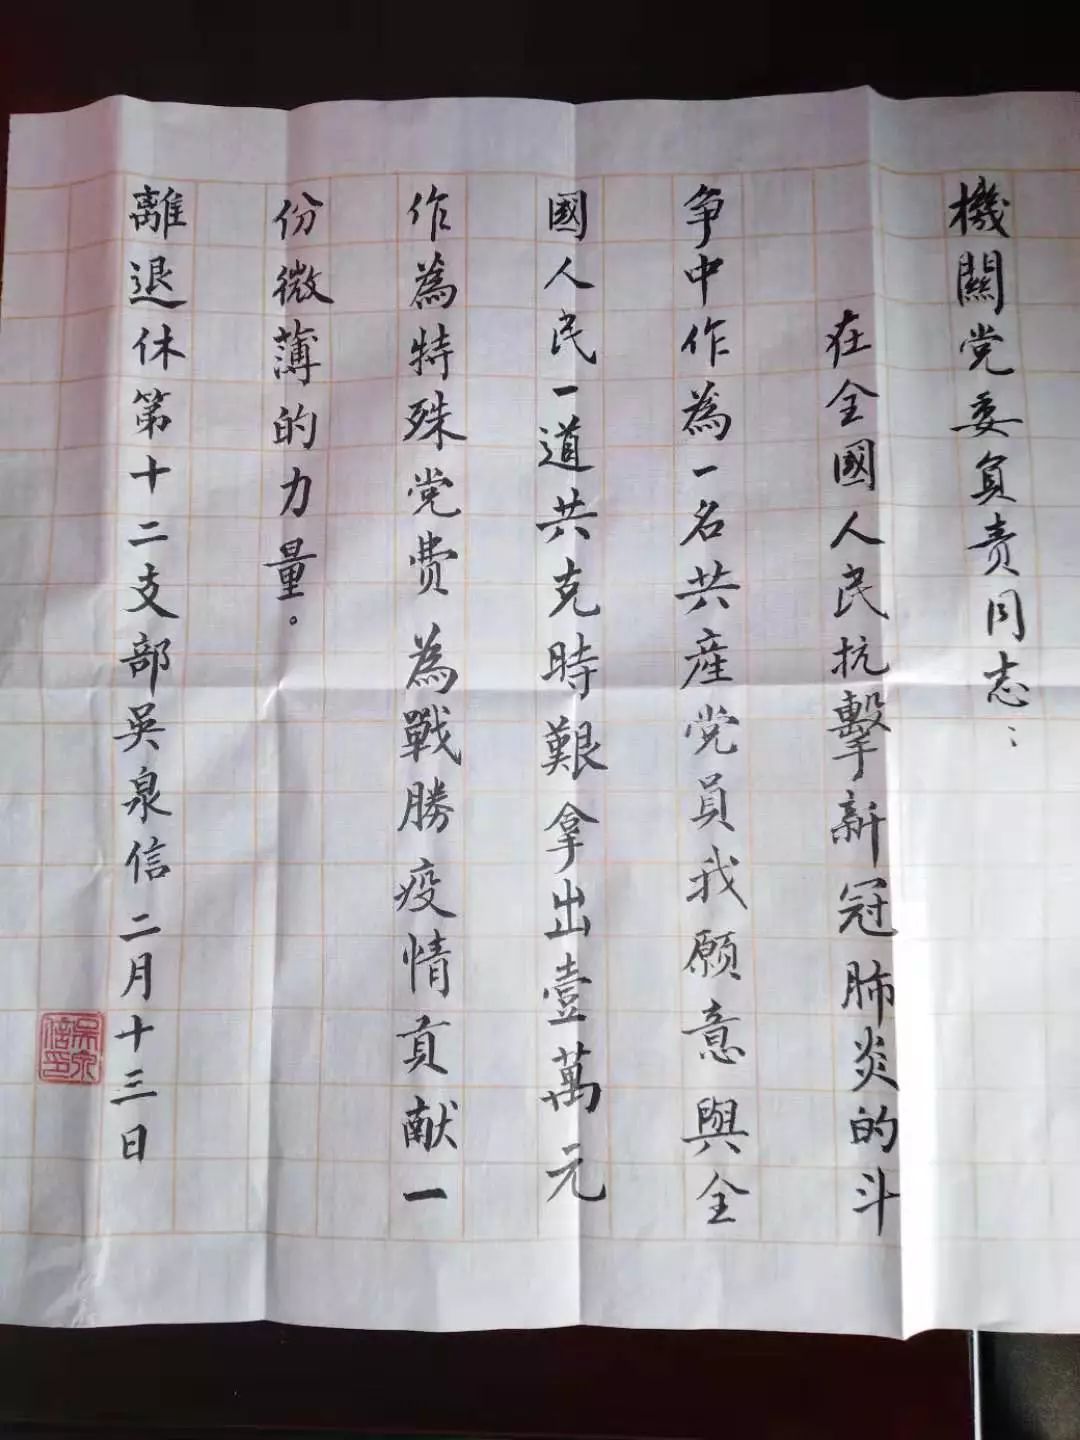 機關党委負责同志：
在全國人民抗擊新冠肺炎的斗
争中作為一名共產党員我愿意與全
國人民一道共克時艱拿出壹萬元
作為特殊党费為戰勝疫情貢献一
份微薄的力量。
離退休第十二支部吳泉信二月十三日
吳泉信印